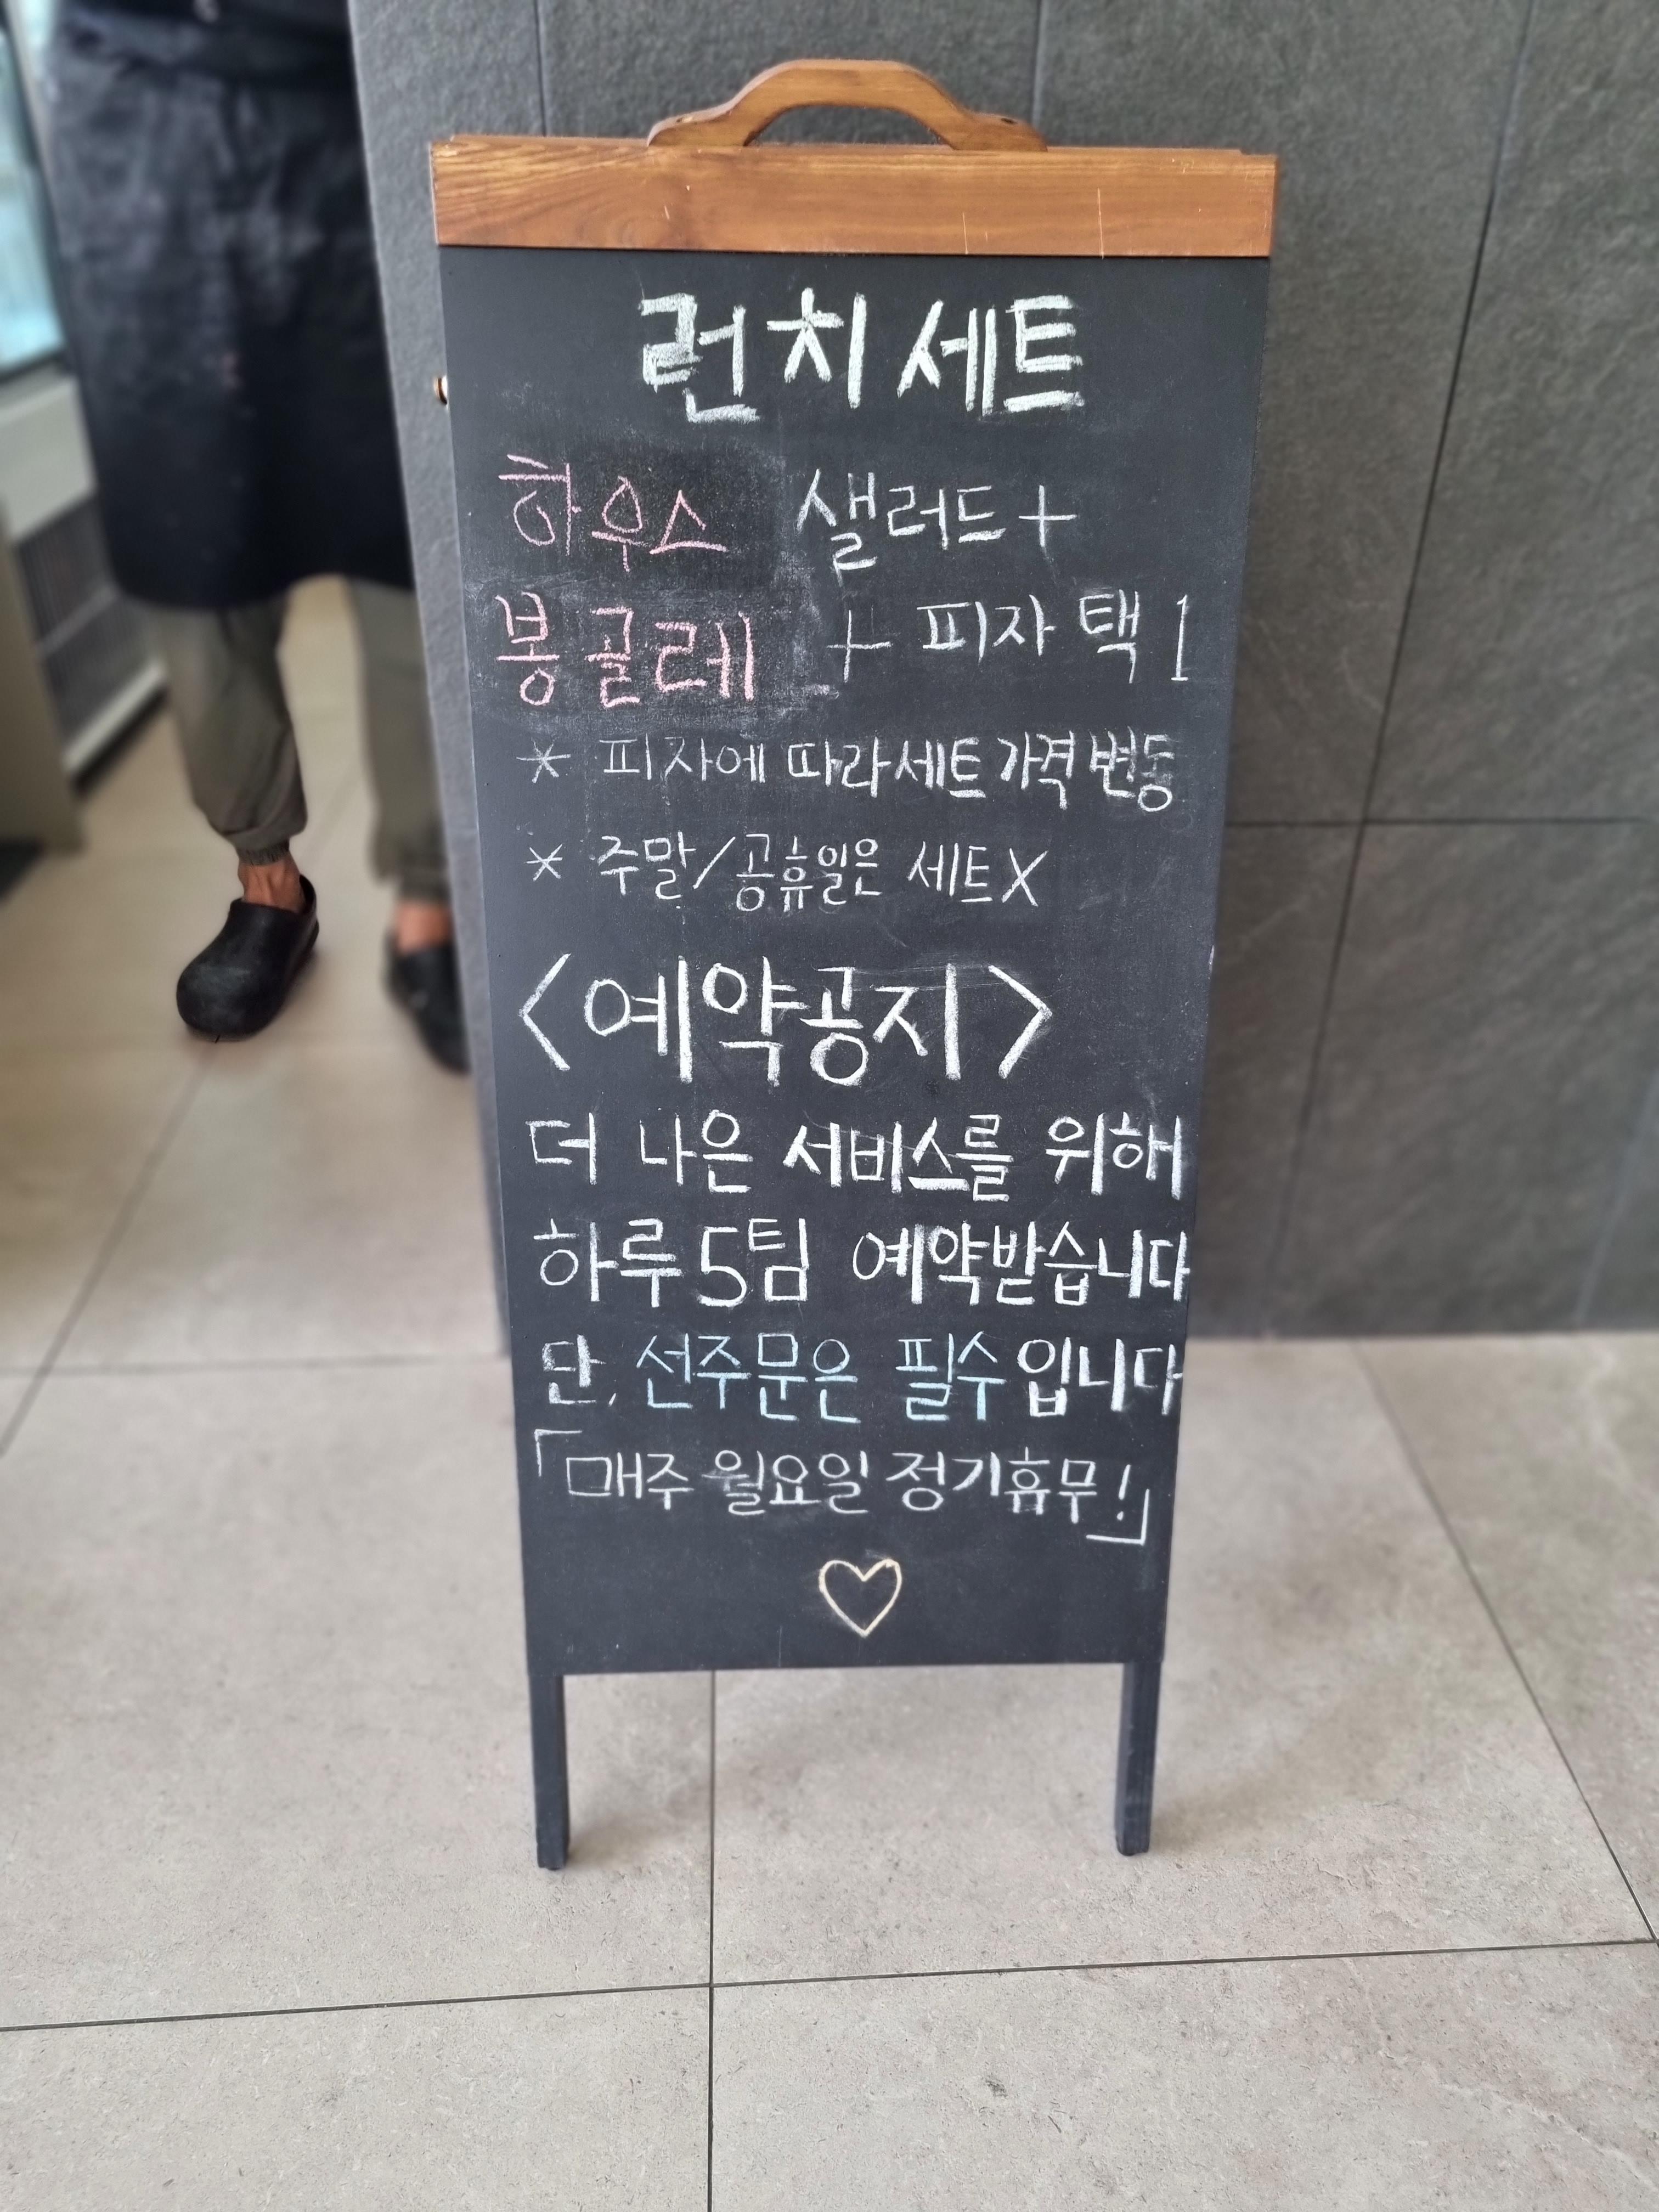 런치세트
하우스 샐러드+
봉골레 + 피자 택 1
* 피자에 따라세트 가격 변동
* 주말/공휴일은 세트X
<예약공지>
더 나은 서비스를 위해
하루 5팀 예약받습니다
단, 선주문은 필수입니다
「매주 월요일 정기휴무!」